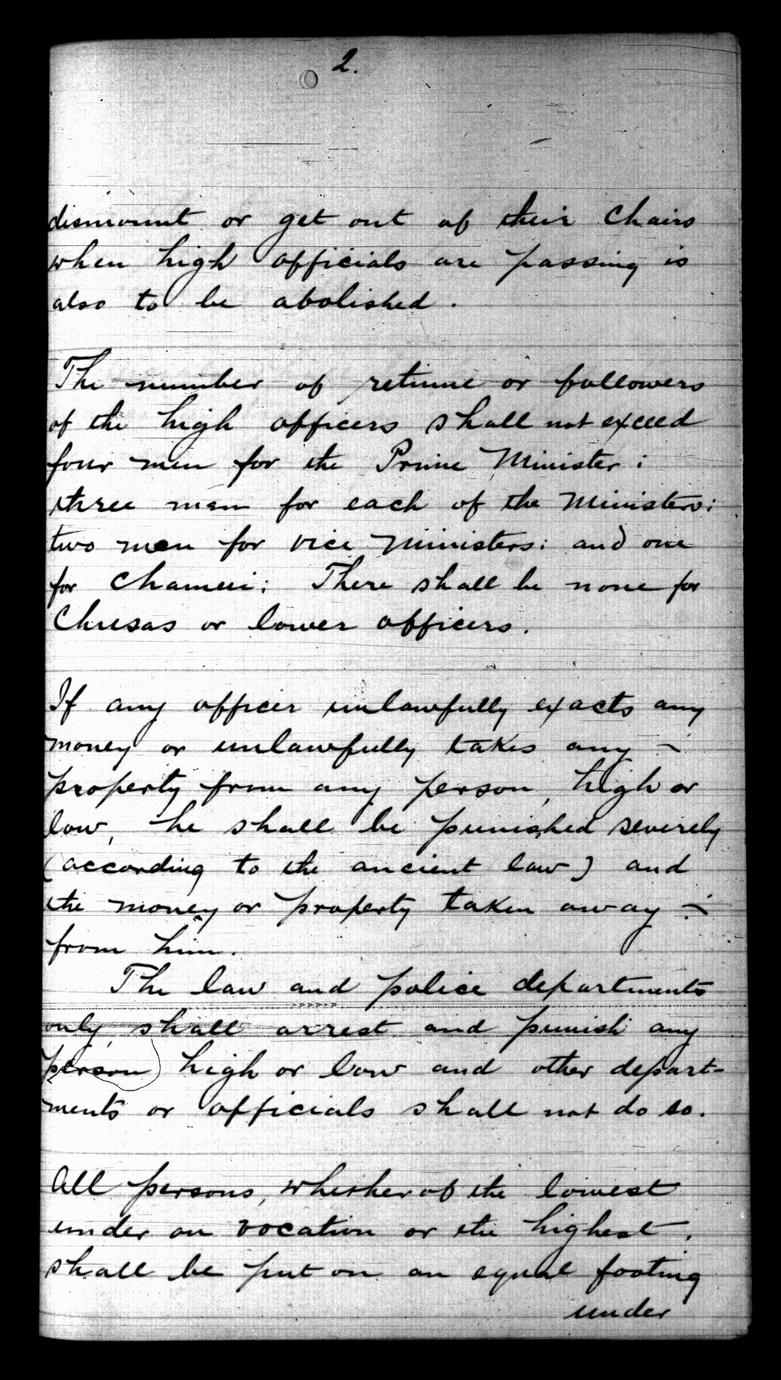 2.
dismount or get out of their Chairs
when high officials are passing is
also to be abolished.
The number of retinue or followers
of the high officers shall not exceed
four men for the Prime Minister;
three men for each of the Ministers;
two men for vice Ministers: and one
for Chameii; There shall be none for
Chusas or lower officers.
If any officer unlawfully exacts any
money or unlawfully takes any –
property from any person, high or
low, he shall be punished severely
(according to the ancient law) and
the money or property taken away –
from him.
The law and police departments
only, shall arrest and punish any
person high or low and other depart-
ments or officials shall not do so.
All persons, whether of the lowest
under on vocation or the highest,
shall be put on an equal footing
under